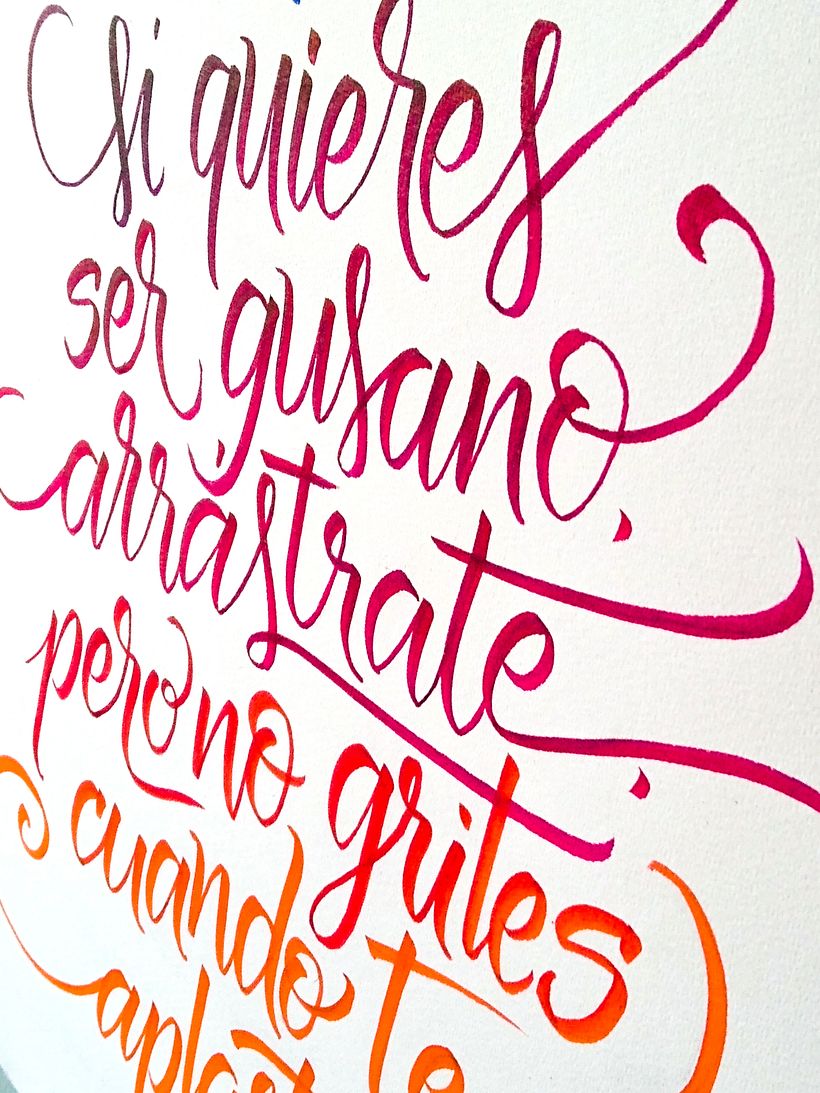 Si quieres
ser gusano,
arrástrate,
pero no grites
cuando te